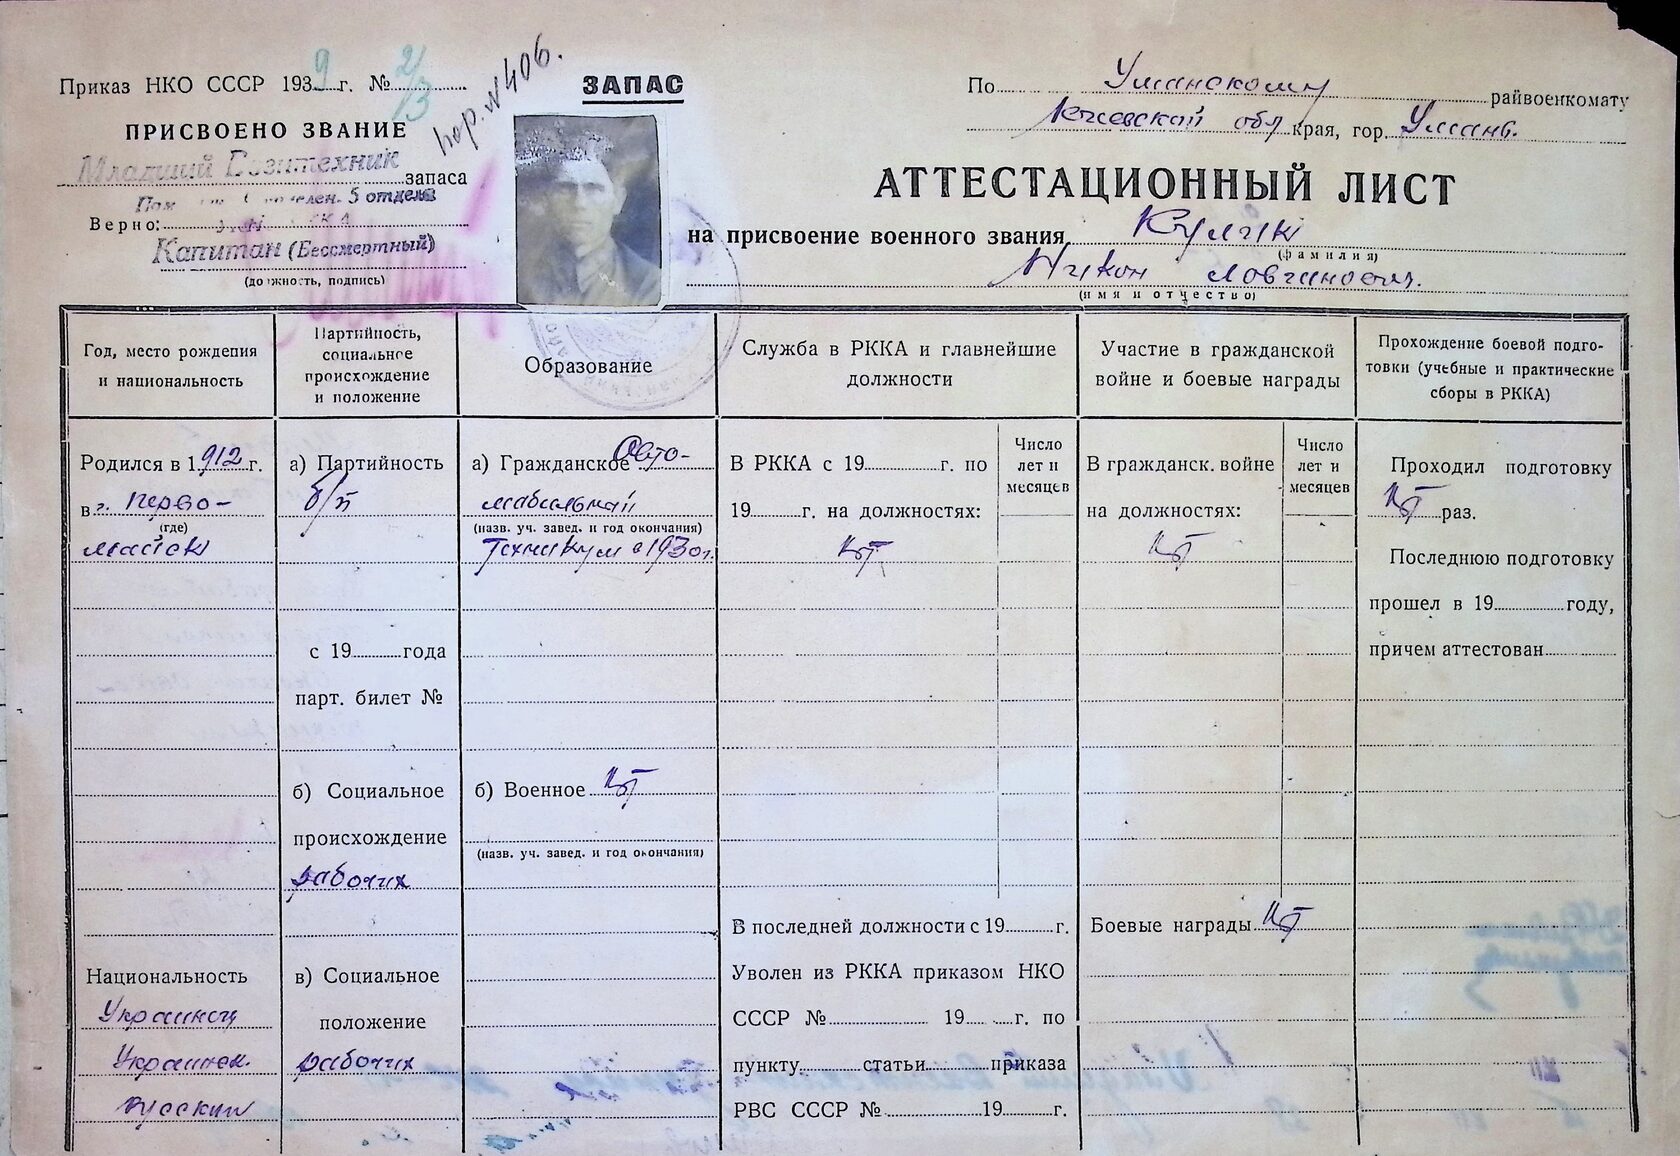 Приказ НКО СССР 1939 г. № 2/3
пор. № 406.
ПРИСВОЕНО ЗВАНИЕ
Младший Воентехник запаса
5 отдела
Верно:
Капитан (Бессмертный)
(должность, подпись)
ЗАПАС
По Уманскому райвоенкомату
Киевской обл края, гор. Умань.
АТТЕСТАЦИОННЫЙ ЛИСТ
на присвоение военного звания Кулик
(фамилия)
Никон
(имя и отчество)
Год, место рождения
и национальность
Родился в 1912 г.
в г. Перво-
(где)
майск
Национальность
Украинец
Украинск.
Русский
Партийность,
социальное
происхождение
и положение
а) Партийность
б/п
с 19 года
парт. билет №
б) Социальное
происхождение
рабочих
в) Социальное
положение
рабочих
Образование
а) Гражданское Авто-
мабильный
(назв. уч. завед. и год окончания)
Техникум в 1930 г.
б) Военное нет
(назв. уч. завед. и год окончания)
Служба в РККА и главнейшие
должности
В РККА с 19 г. по
19 г. на должностях:
нет
Число
лет и
месяцев
В последней должности с 19 г.
Уволен из РККА приказом НКО
СССР № 19 г. по
пункту статьи приказа
РВС СССР № 19 г.
Участие в гражданской
войне и боевые награды
В гражданск. войне
на должностях:
нет
Число
лет и
месяцев
Боевые награды нет
Прохождение боевой подго-
товки (учебные и практические
сборы в РККА)
Проходил подготовку
нет раз.
Последнюю подготовку
прошел в 19 году,
причем аттестован